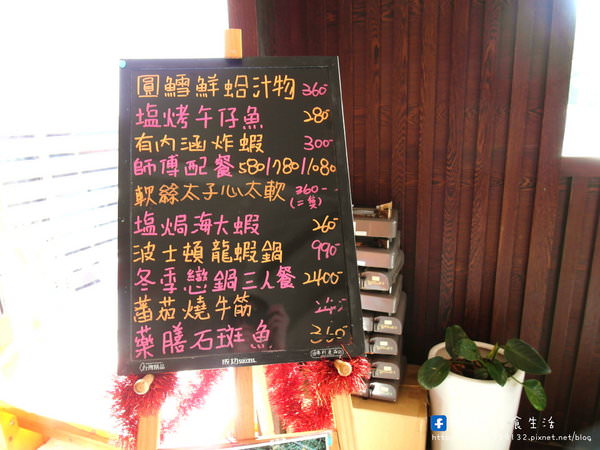 圓鱈鮮蛤汁物 360
塩烤午仔魚 280
有內涵炸蝦 300
師傅配餐 580/780/1080
軟絲太子心太軟 360-
(二隻)
塩焗海大蝦 260
波士頓龍蝦鍋 990
冬季戀鍋三人餐 2400
蕃茄燒牛筋
藥膳石斑魚 360
食生活
132.pixnet.net/blog